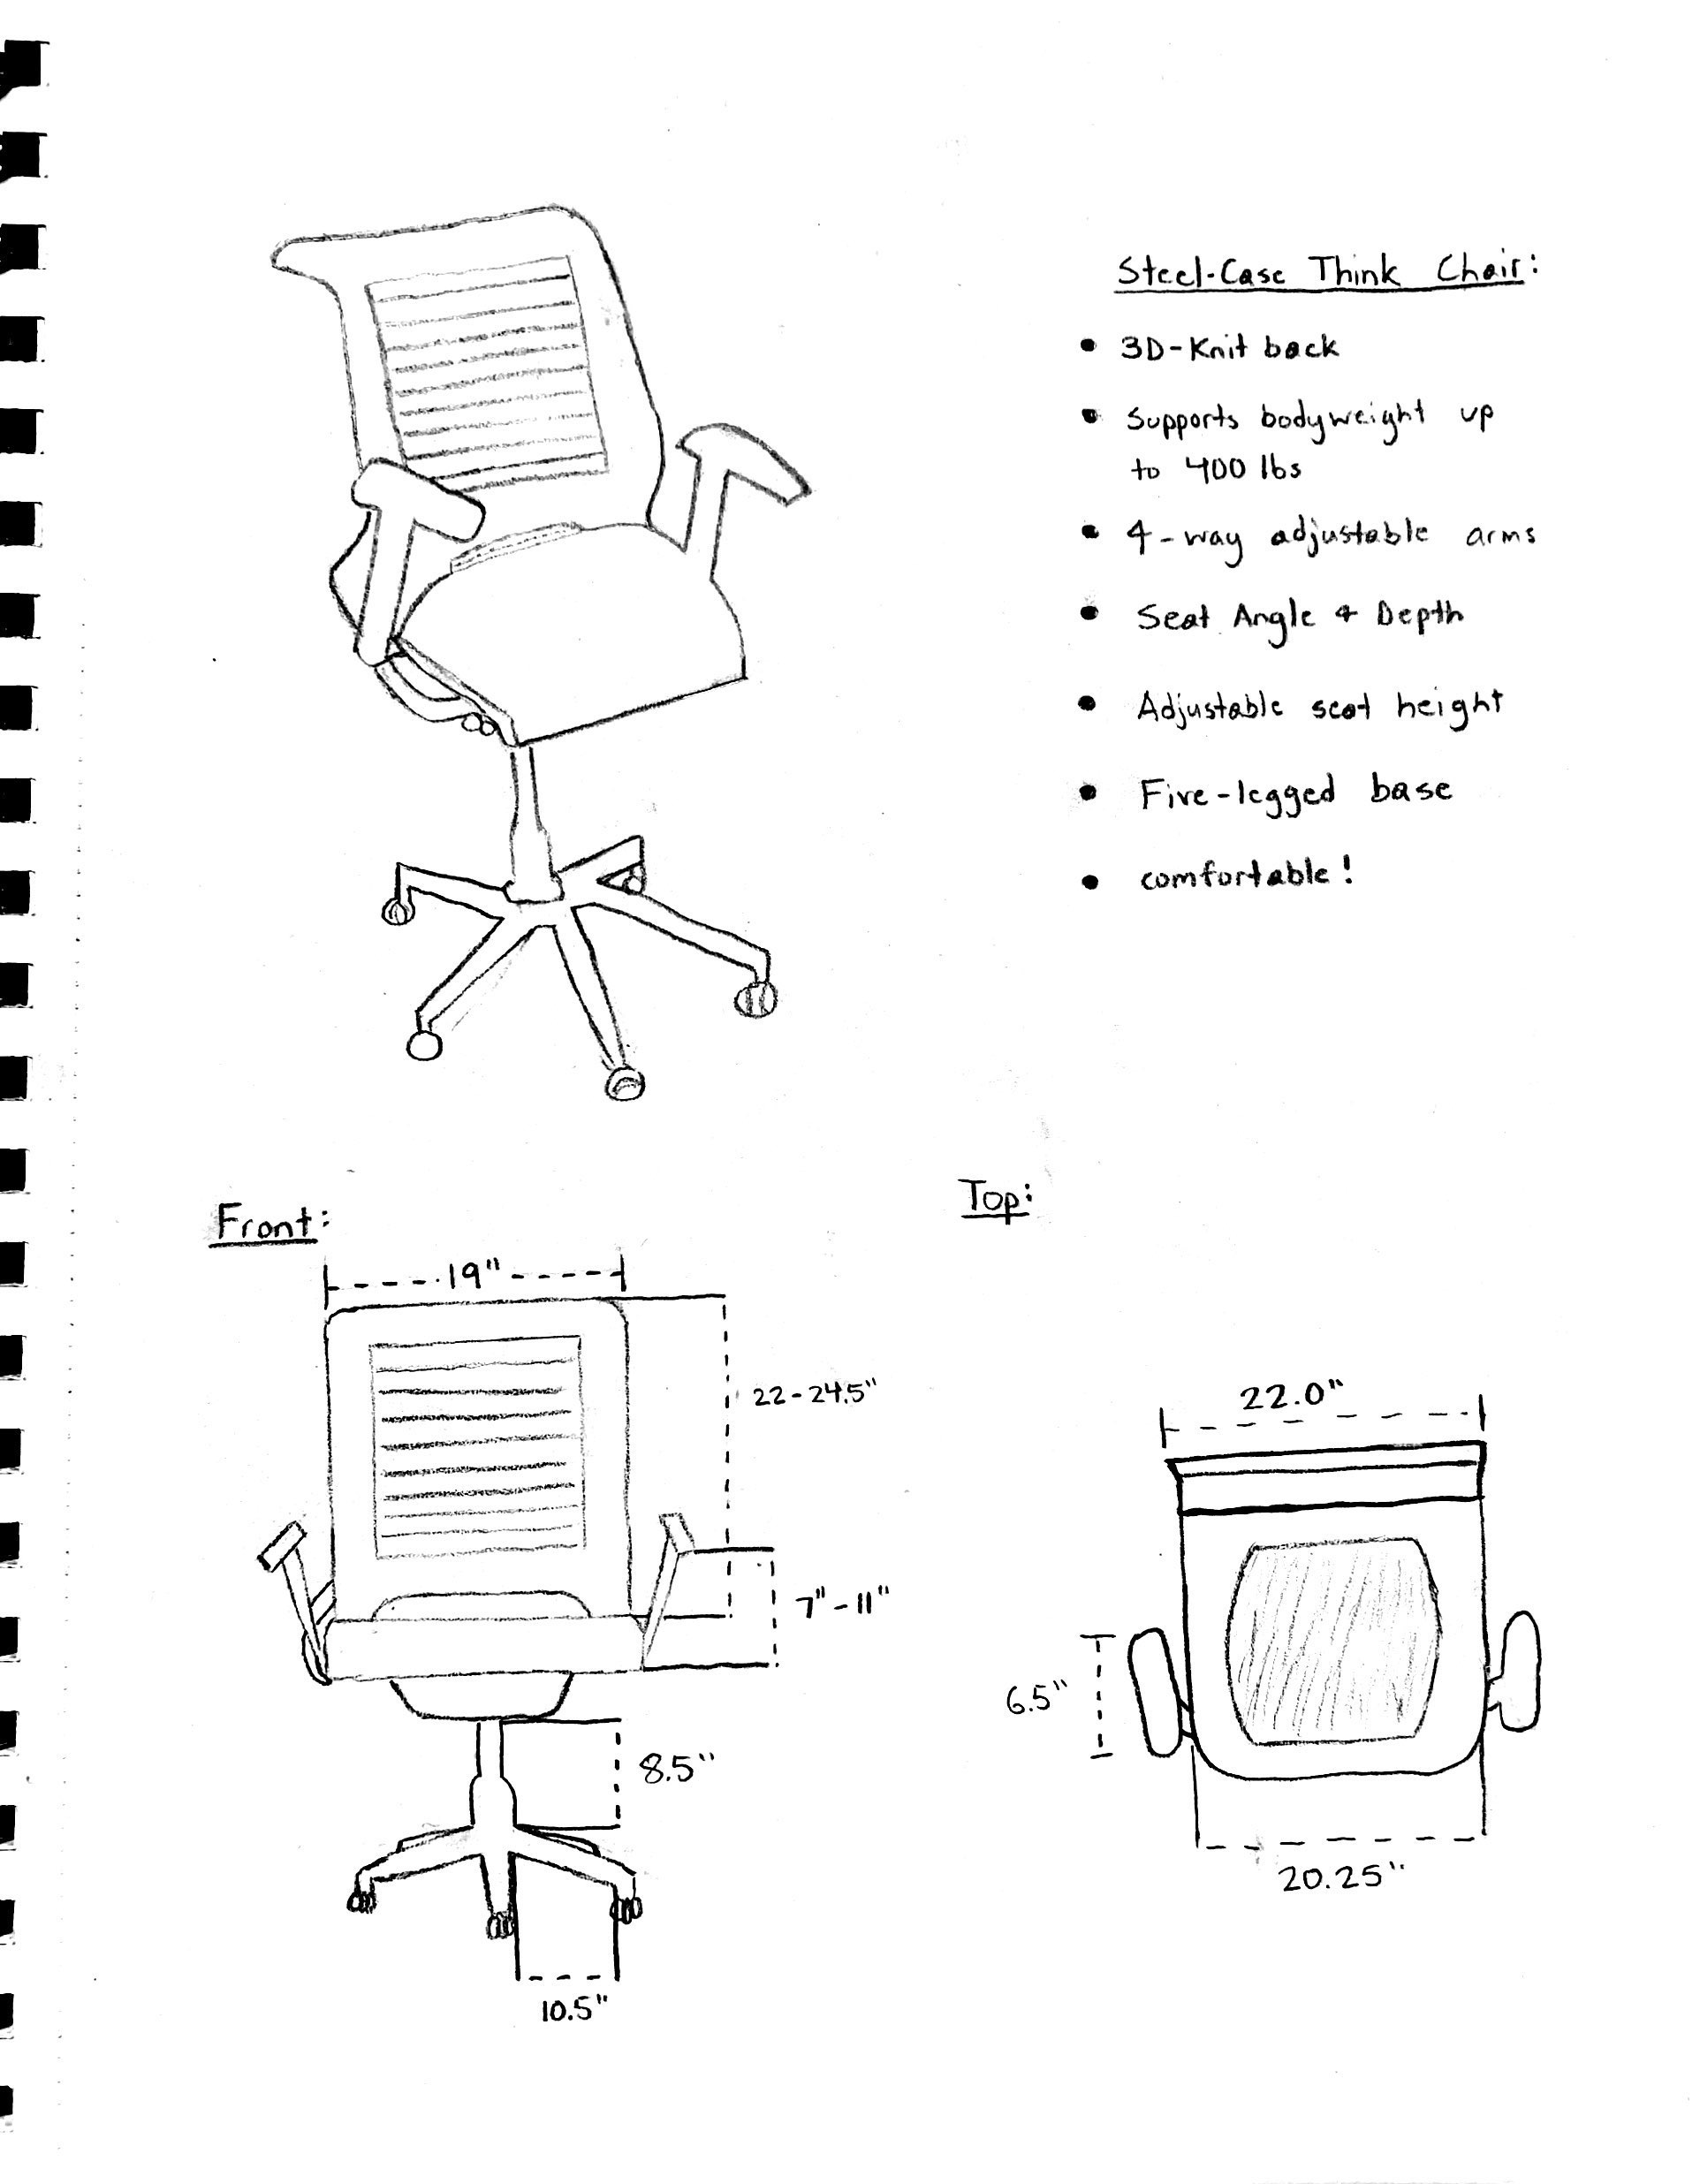 Steel-Case Think Chair:
• 3D-Knit back
• Supports bodyweight up
to 400 lbs
• 4-way adjustable arms
• Seat Angle & Depth
• Adjustable seat height
• Five-legged base
• comfortable!
Front:
19"
22-24.5"
7"-11"
8.5"
10.5"
Top:
22.0"
6.5"
20.25"